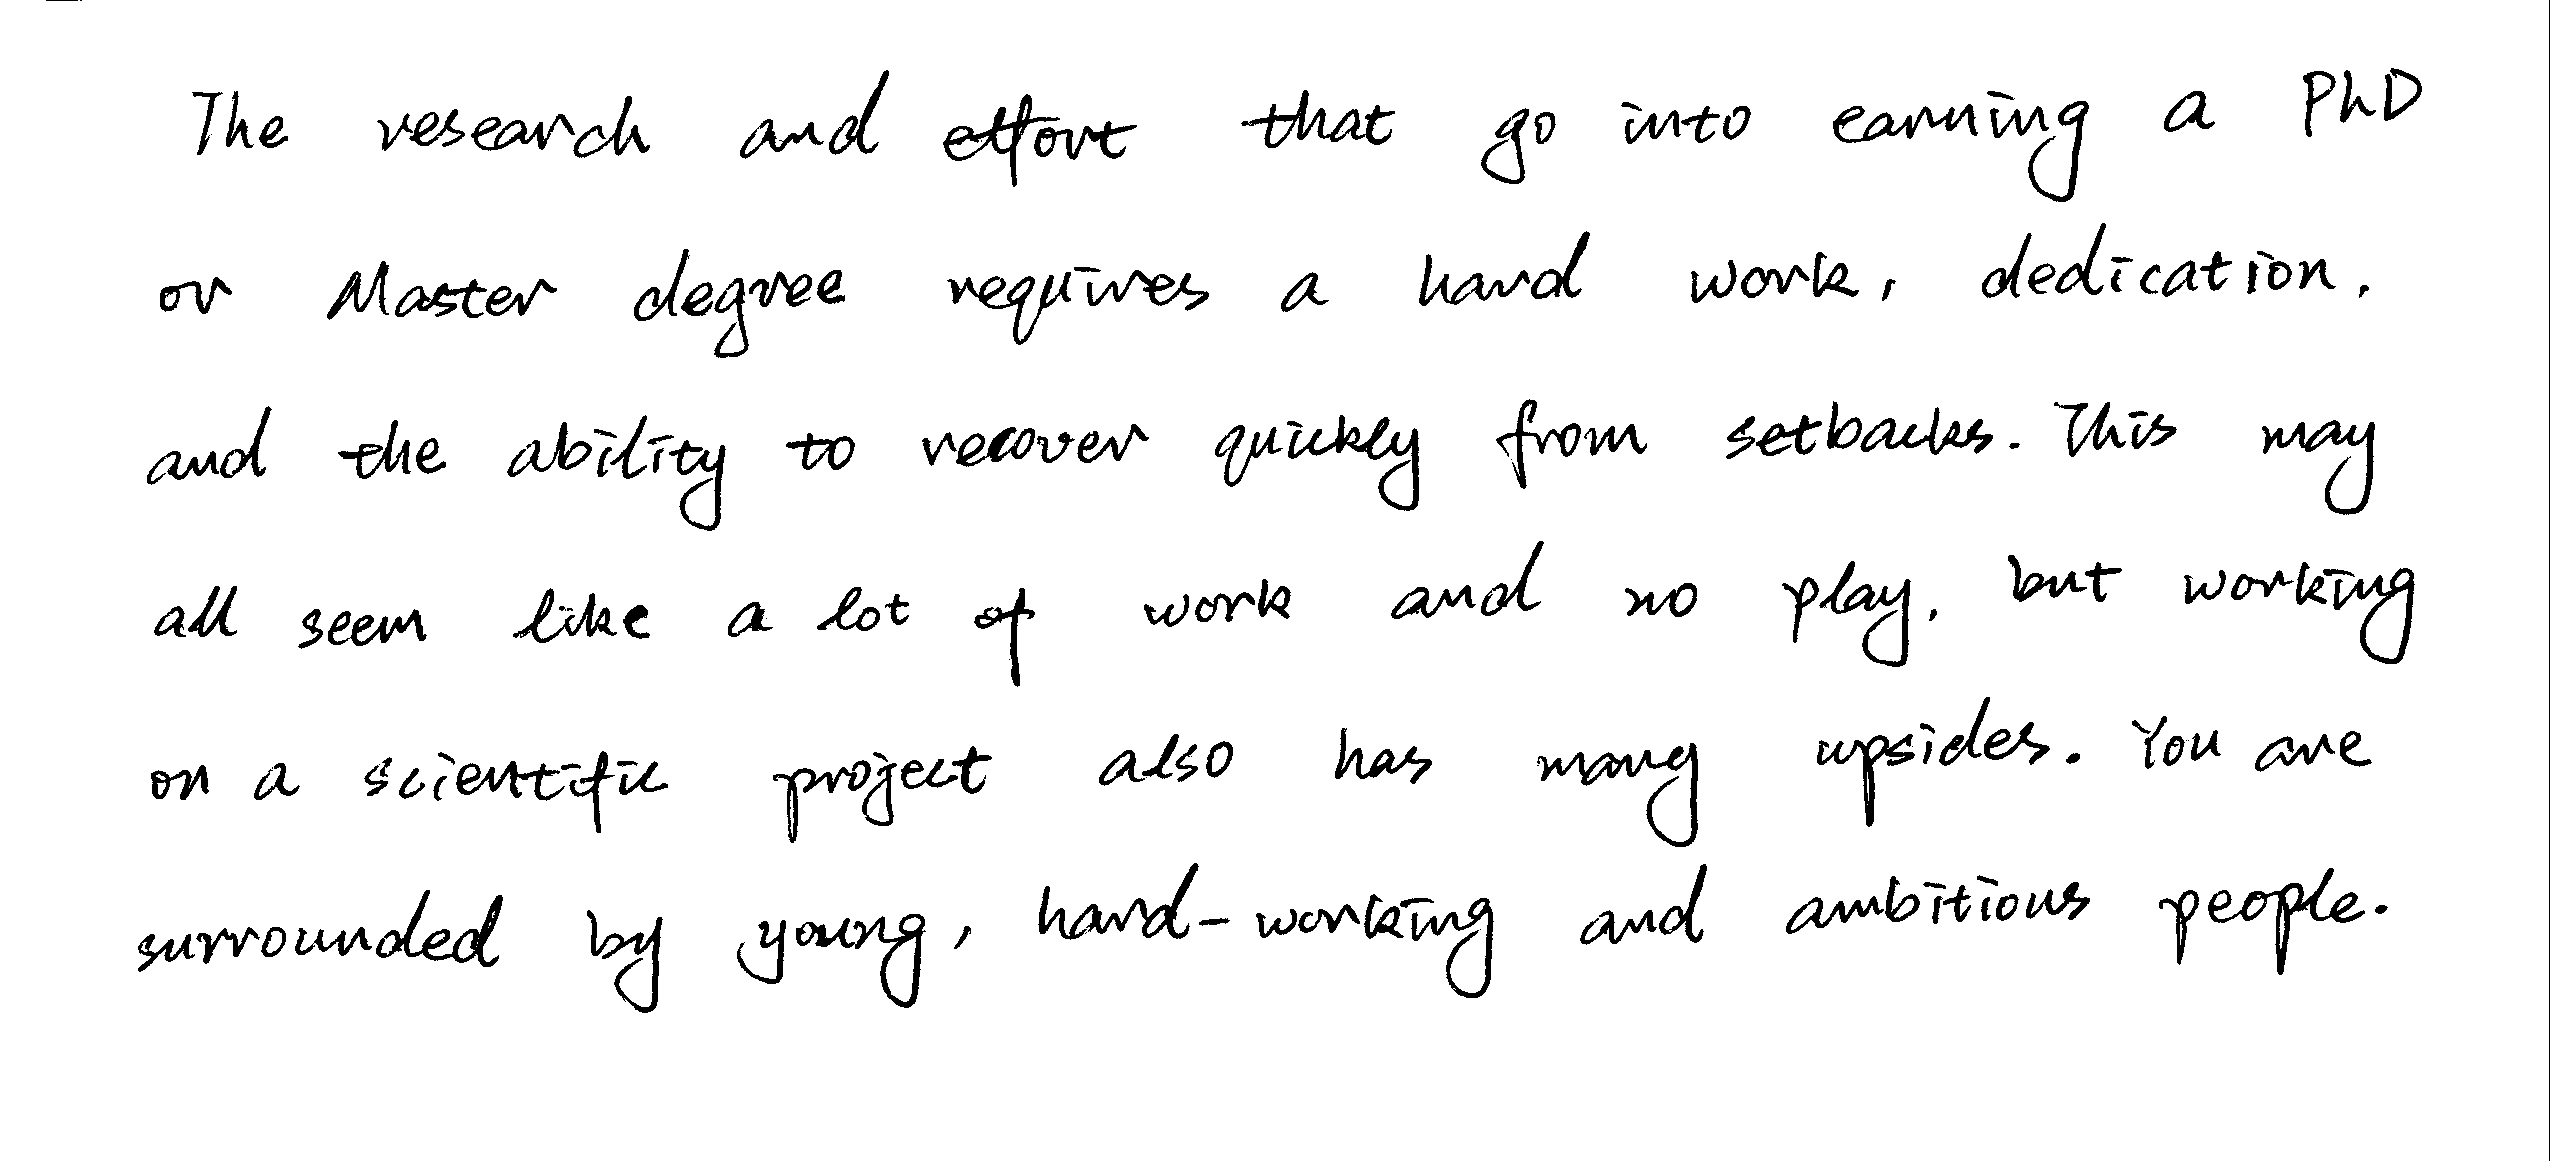 The research and effort that go into earning a PhD
or Master degree requires a hard work, dedication,
and the ability to recover quickly from setbacks. This may
all seem like a lot of work and no play, but working
on a scientific project also has many upsides. You are
surrounded by young, hard-working and ambitious people.